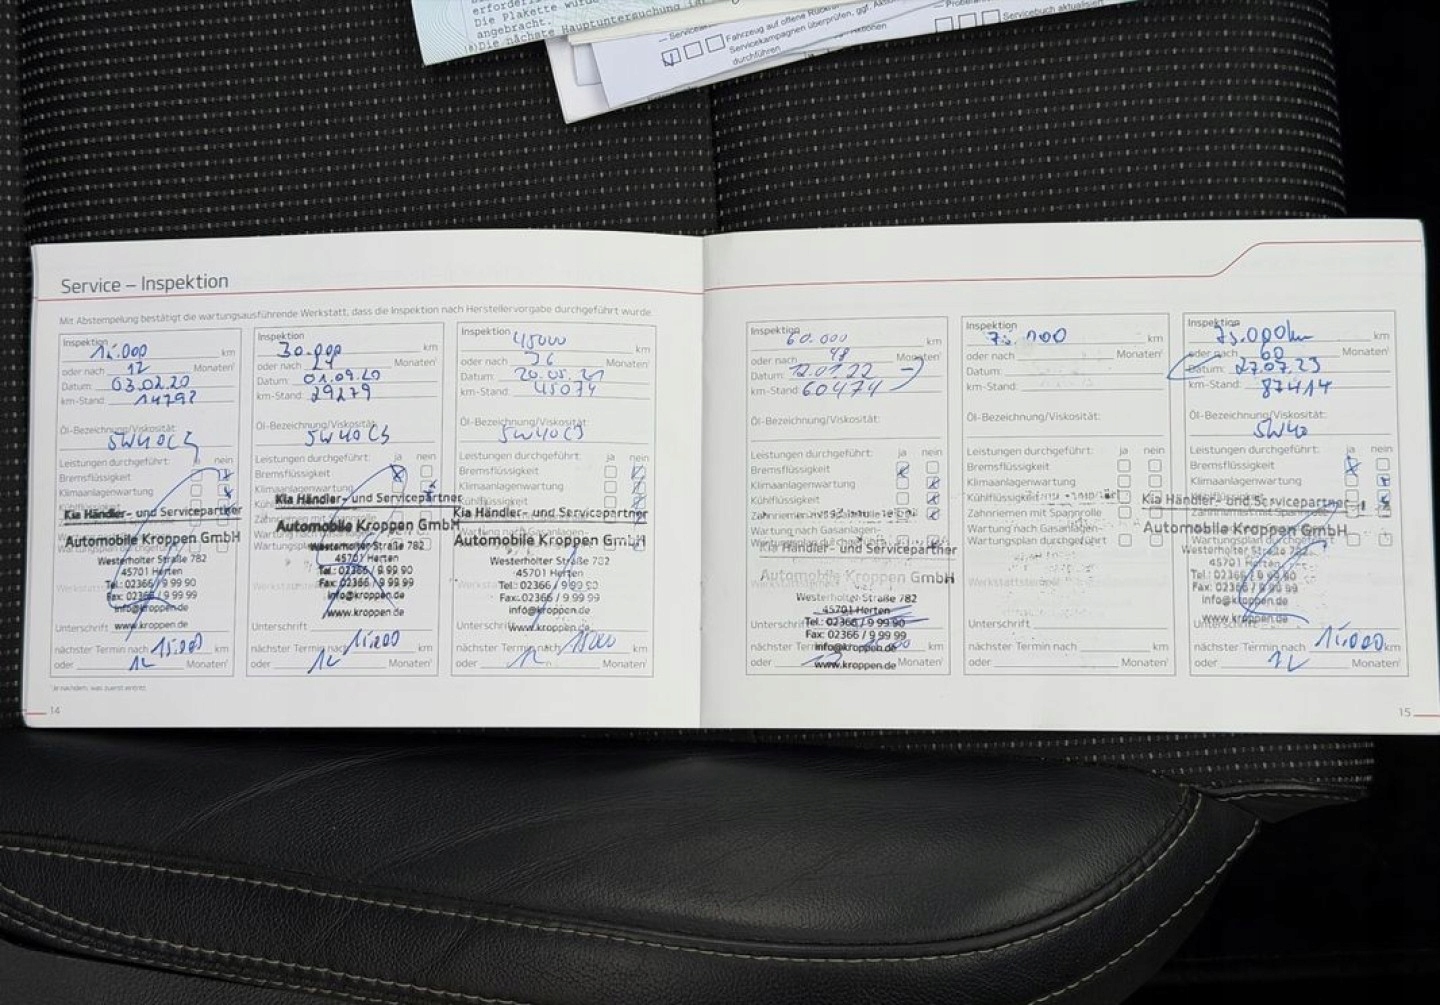 Die Plakette wurde
angebracht.
Die nächste Hauptuntersuchung
Fahrzeug auf offene
Servicekampagnen überprüfen, ggf.
durchführen
Servicebuch aktualisiert
Service – Inspektion
Mit Abstempelung bestätigt die wartungsausführende Werkstatt, dass die Inspektion nach Herstellervorgabe durchgeführt wurde.
Inspektion
15.000 km
oder nach 12 Monaten¹
Datum: 03.02.20
km-Stand: 14792
Öl-Bezeichnung/Viskosität:
5W40 C3
Leistungen durchgeführt: ja nein
Bremsflüssigkeit
Klimaanlagenwartung
Kia Händler- und Servicepartner
Automobile Kroppen GmbH
Westerholter Straße 782
45701 Herten
Tel.: 02366 / 9 99 90
Fax: 02366 / 9 99 99
info@kroppen.de
www.kroppen.de
Unterschrift
nächster Termin nach 15.000 km
oder 12 Monaten¹
Inspektion
30.000 km
oder nach 24 Monaten¹
Datum: 01.09.20
km-Stand: 29279
Öl-Bezeichnung/Viskosität:
5W40 C3
Leistungen durchgeführt: ja nein
Bremsflüssigkeit
Klimaanlagenwartung
Kia Händler- und Servicepartner
Automobile Kroppen GmbH
Westerholter Straße 782
45701 Herten
Tel.: 02366 / 9 99 90
Fax: 02366 / 9 99 99
info@kroppen.de
www.kroppen.de
Unterschrift
nächster Termin nach 15.000 km
oder 12 Monaten¹
Inspektion
45000 km
oder nach 36 Monaten¹
Datum: 20.05.21
km-Stand: 45074
Öl-Bezeichnung/Viskosität:
5W40 C3
Leistungen durchgeführt: ja nein
Bremsflüssigkeit
Klimaanlagenwartung
Kühlflüssigkeit
Kia Händler- und Servicepartner
Automobile Kroppen GmbH
Westerholter Straße 782
45701 Herten
Tel.: 02366 / 9 99 90
Fax: 02366 / 9 99 99
info@kroppen.de
Unterschrift www.kroppen.de
nächster Termin nach 15000 km
oder 12 Monaten¹
¹ je nachdem, was zuerst eintritt
14
Inspektion
60.000 km
oder nach 48 Monaten¹
Datum: 12.01.22
km-Stand: 60474
Öl-Bezeichnung/Viskosität:
Leistungen durchgeführt: ja nein
Bremsflüssigkeit
Klimaanlagenwartung
Kühlflüssigkeit
Zahnriemen
Wartung nach Gasanlagen-
Wartungsplan durchgeführt
Kia Händler- und Servicepartner
Automobile Kroppen GmbH
Westerholter Straße 782
45701 Herten
Tel.: 02366 / 9 99 90
Unterschrift Fax: 02366 / 9 99 99
nächster Termin info@kroppen.de km
oder www.kroppen.de Monaten¹
Inspektion
km
oder nach Monaten¹
Datum:
km-Stand:
Öl-Bezeichnung/Viskosität:
Leistungen durchgeführt: ja nein
Bremsflüssigkeit
Klimaanlagenwartung
Kühlflüssigkeit
Zahnriemen mit Spannrolle
Wartung nach Gasanlagen-
Wartungsplan durchgeführt
Werkstattstempel
Unterschrift
nächster Termin nach km
oder Monaten¹
Inspektion
75.000km km
oder nach 60 Monaten¹
Datum: 27.07.23
km-Stand: 87414
Öl-Bezeichnung/Viskosität:
5W40
Leistungen durchgeführt: ja nein
Bremsflüssigkeit
Klimaanlagenwartung
Kia Händler- und Servicepartner
Zahnriemen mit Spannrolle
Automobile Kroppen GmbH
Westerholter Straße 782
45701 Herten
Tel.: 02366 / 9 99 90
Fax: 02366 / 9 99 99
info@kroppen.de
www.kroppen.de
Unterschrift
nächster Termin nach 15.000 km
oder 12 Monaten¹
15